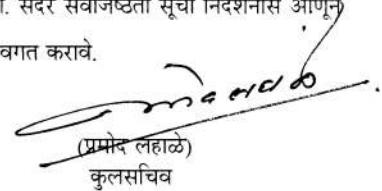 सदर सेवाजेष्ठता सूची निदर्शनास आणून
वगत करावे.
(प्रमोद लहाळे)
कुलसचिव